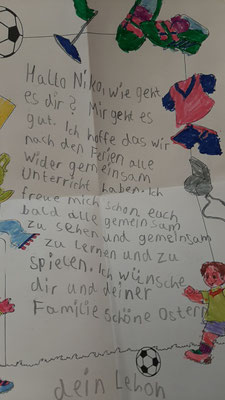 Hallo Niko, wie geht
es dir? Mir geht es
gut. Ich hoffe das wir
nach den Ferien alle
wider gemeinsam
Unterricht haben. Ich
freue mich schon euch
bald alle gemeinsam
zu sehen und gemeinsam
zu lernen und zu
spielen. Ich wünsche
dir und deiner
Familie schöne Ostern
dein Lehon